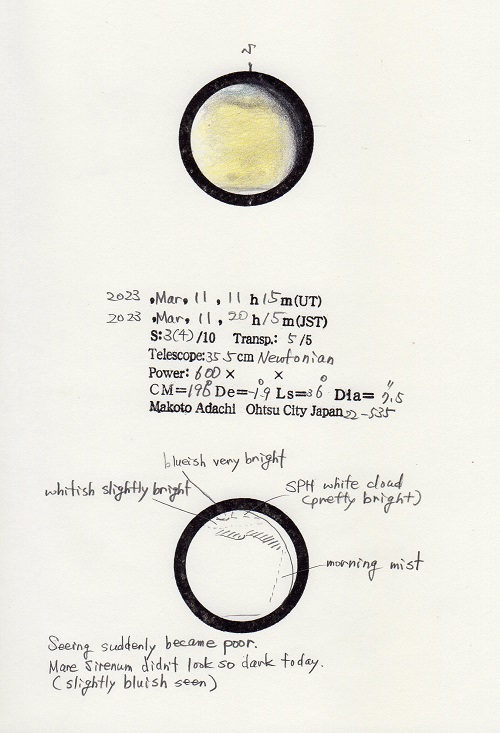 N
2023 , Mar, 11 , 11 h 15 m (UT)
2023 , Mar, 11 , 20 h 15 m (JST)
S: 3(4) /10 Transp.: 5 /5
Telescope: 35.5 cm Newtonian
Power: 600 × × 
CM=196° De=-1.9° Ls=36° Dia= 7.5"
Makoto Adachi Ohtsu City Japan 22-535
blueish very bright
whitish slightly bright
SPH white cloud
(pretty bright)
morning mist
Seeing suddenly became poor.
Mare Sirenum didn't look so dark today.
(slightly bluish seen)